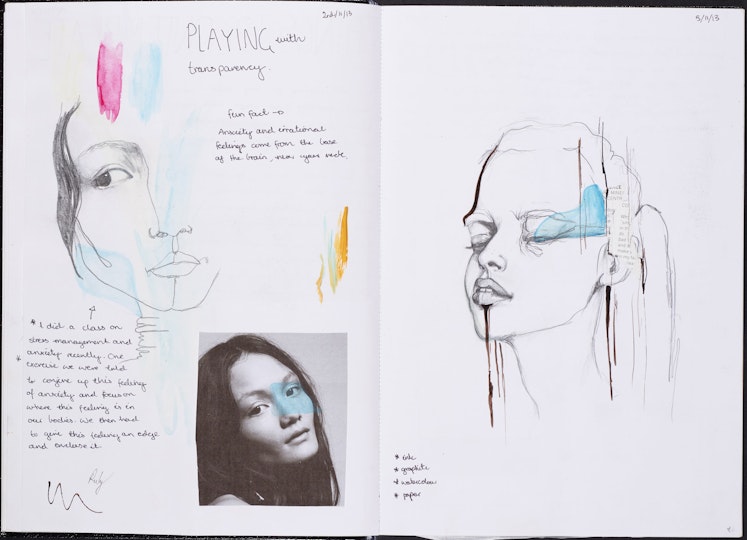 2nd/11/13
PLAYING with
transparency.
Fun fact →
Anxiety and irrational
feelings come from the base
of the brain, near your neck.
* I did a class on
stress management and
anxiety recently. One
* exercise we were told
to conjure up this feeling
of anxiety and focus on
where this feeling is in
our bodies we then had
to give this feeling an edge
and enclose it.
Ruby
5/11/13
* ink
* graphite
* watercolour
* paper